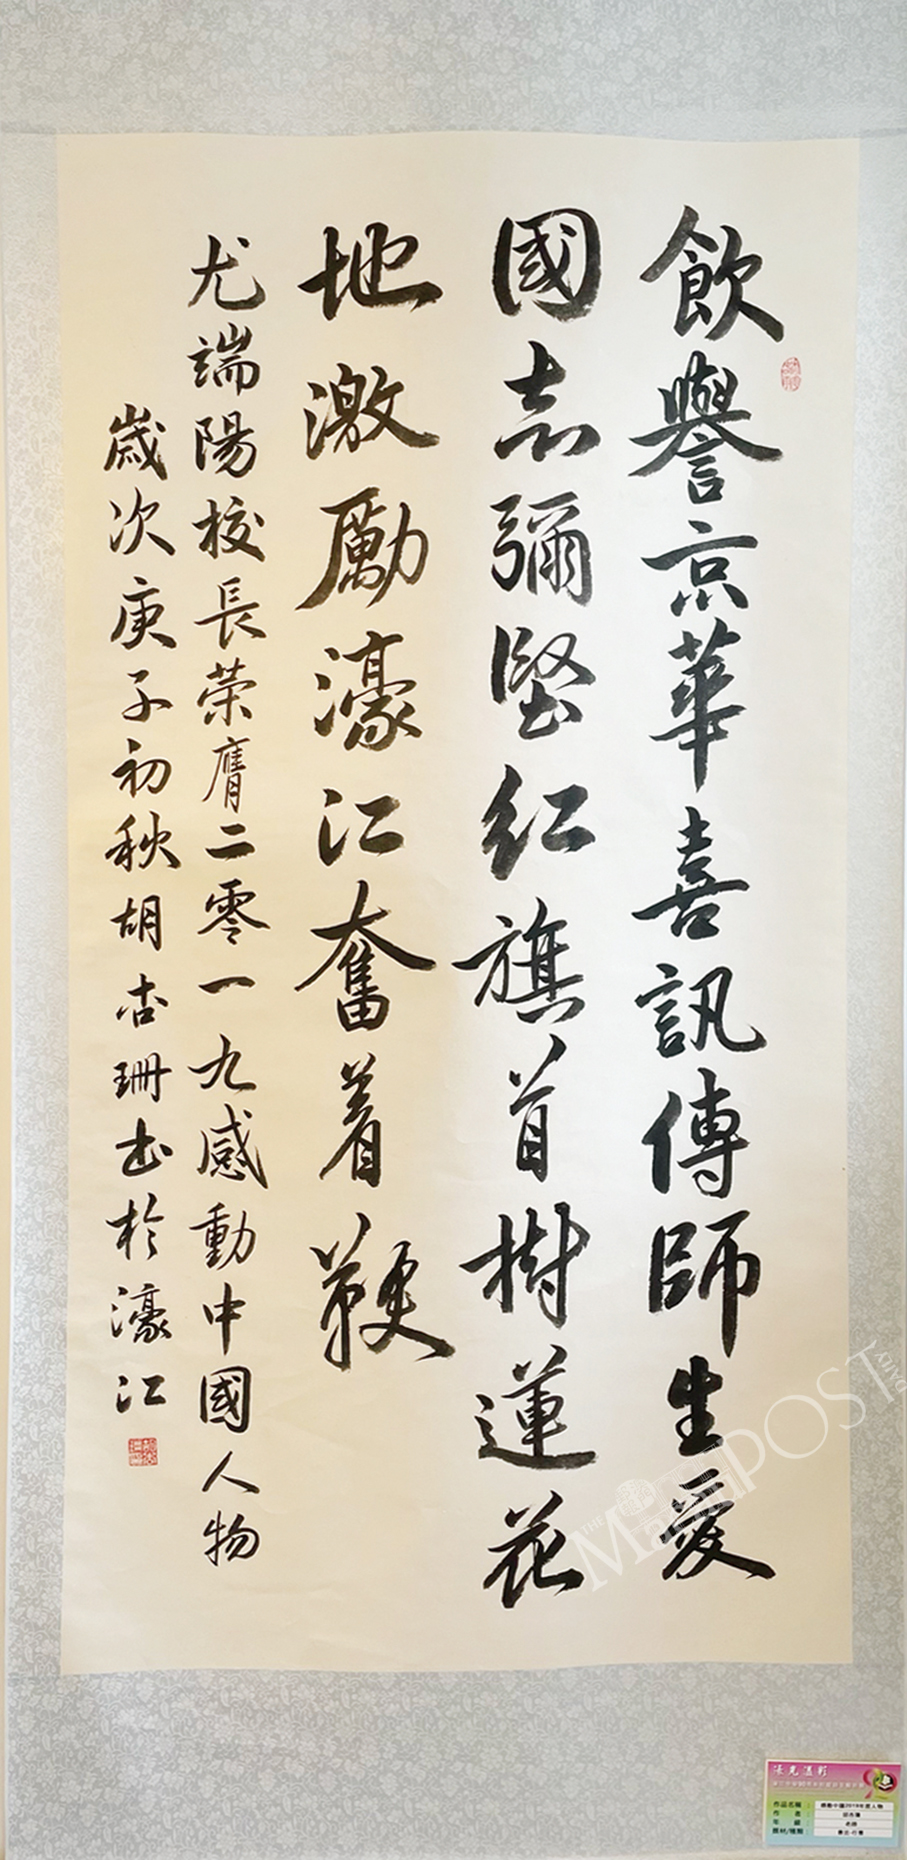 飲譽京華喜訊傳師生愛
國志彌堅紅旗首樹蓮花
地激勵濠江奮着鞭
尤端陽校長榮膺二零一九感動中國人物
歲次庚子初秋胡杏珊書於濠江
THE MACAU POST DAILY
濠光溢彩
作品名稱：感動中國2019年度人物
作者：胡杏珊
年級：老師
題材/種類：書法-行書